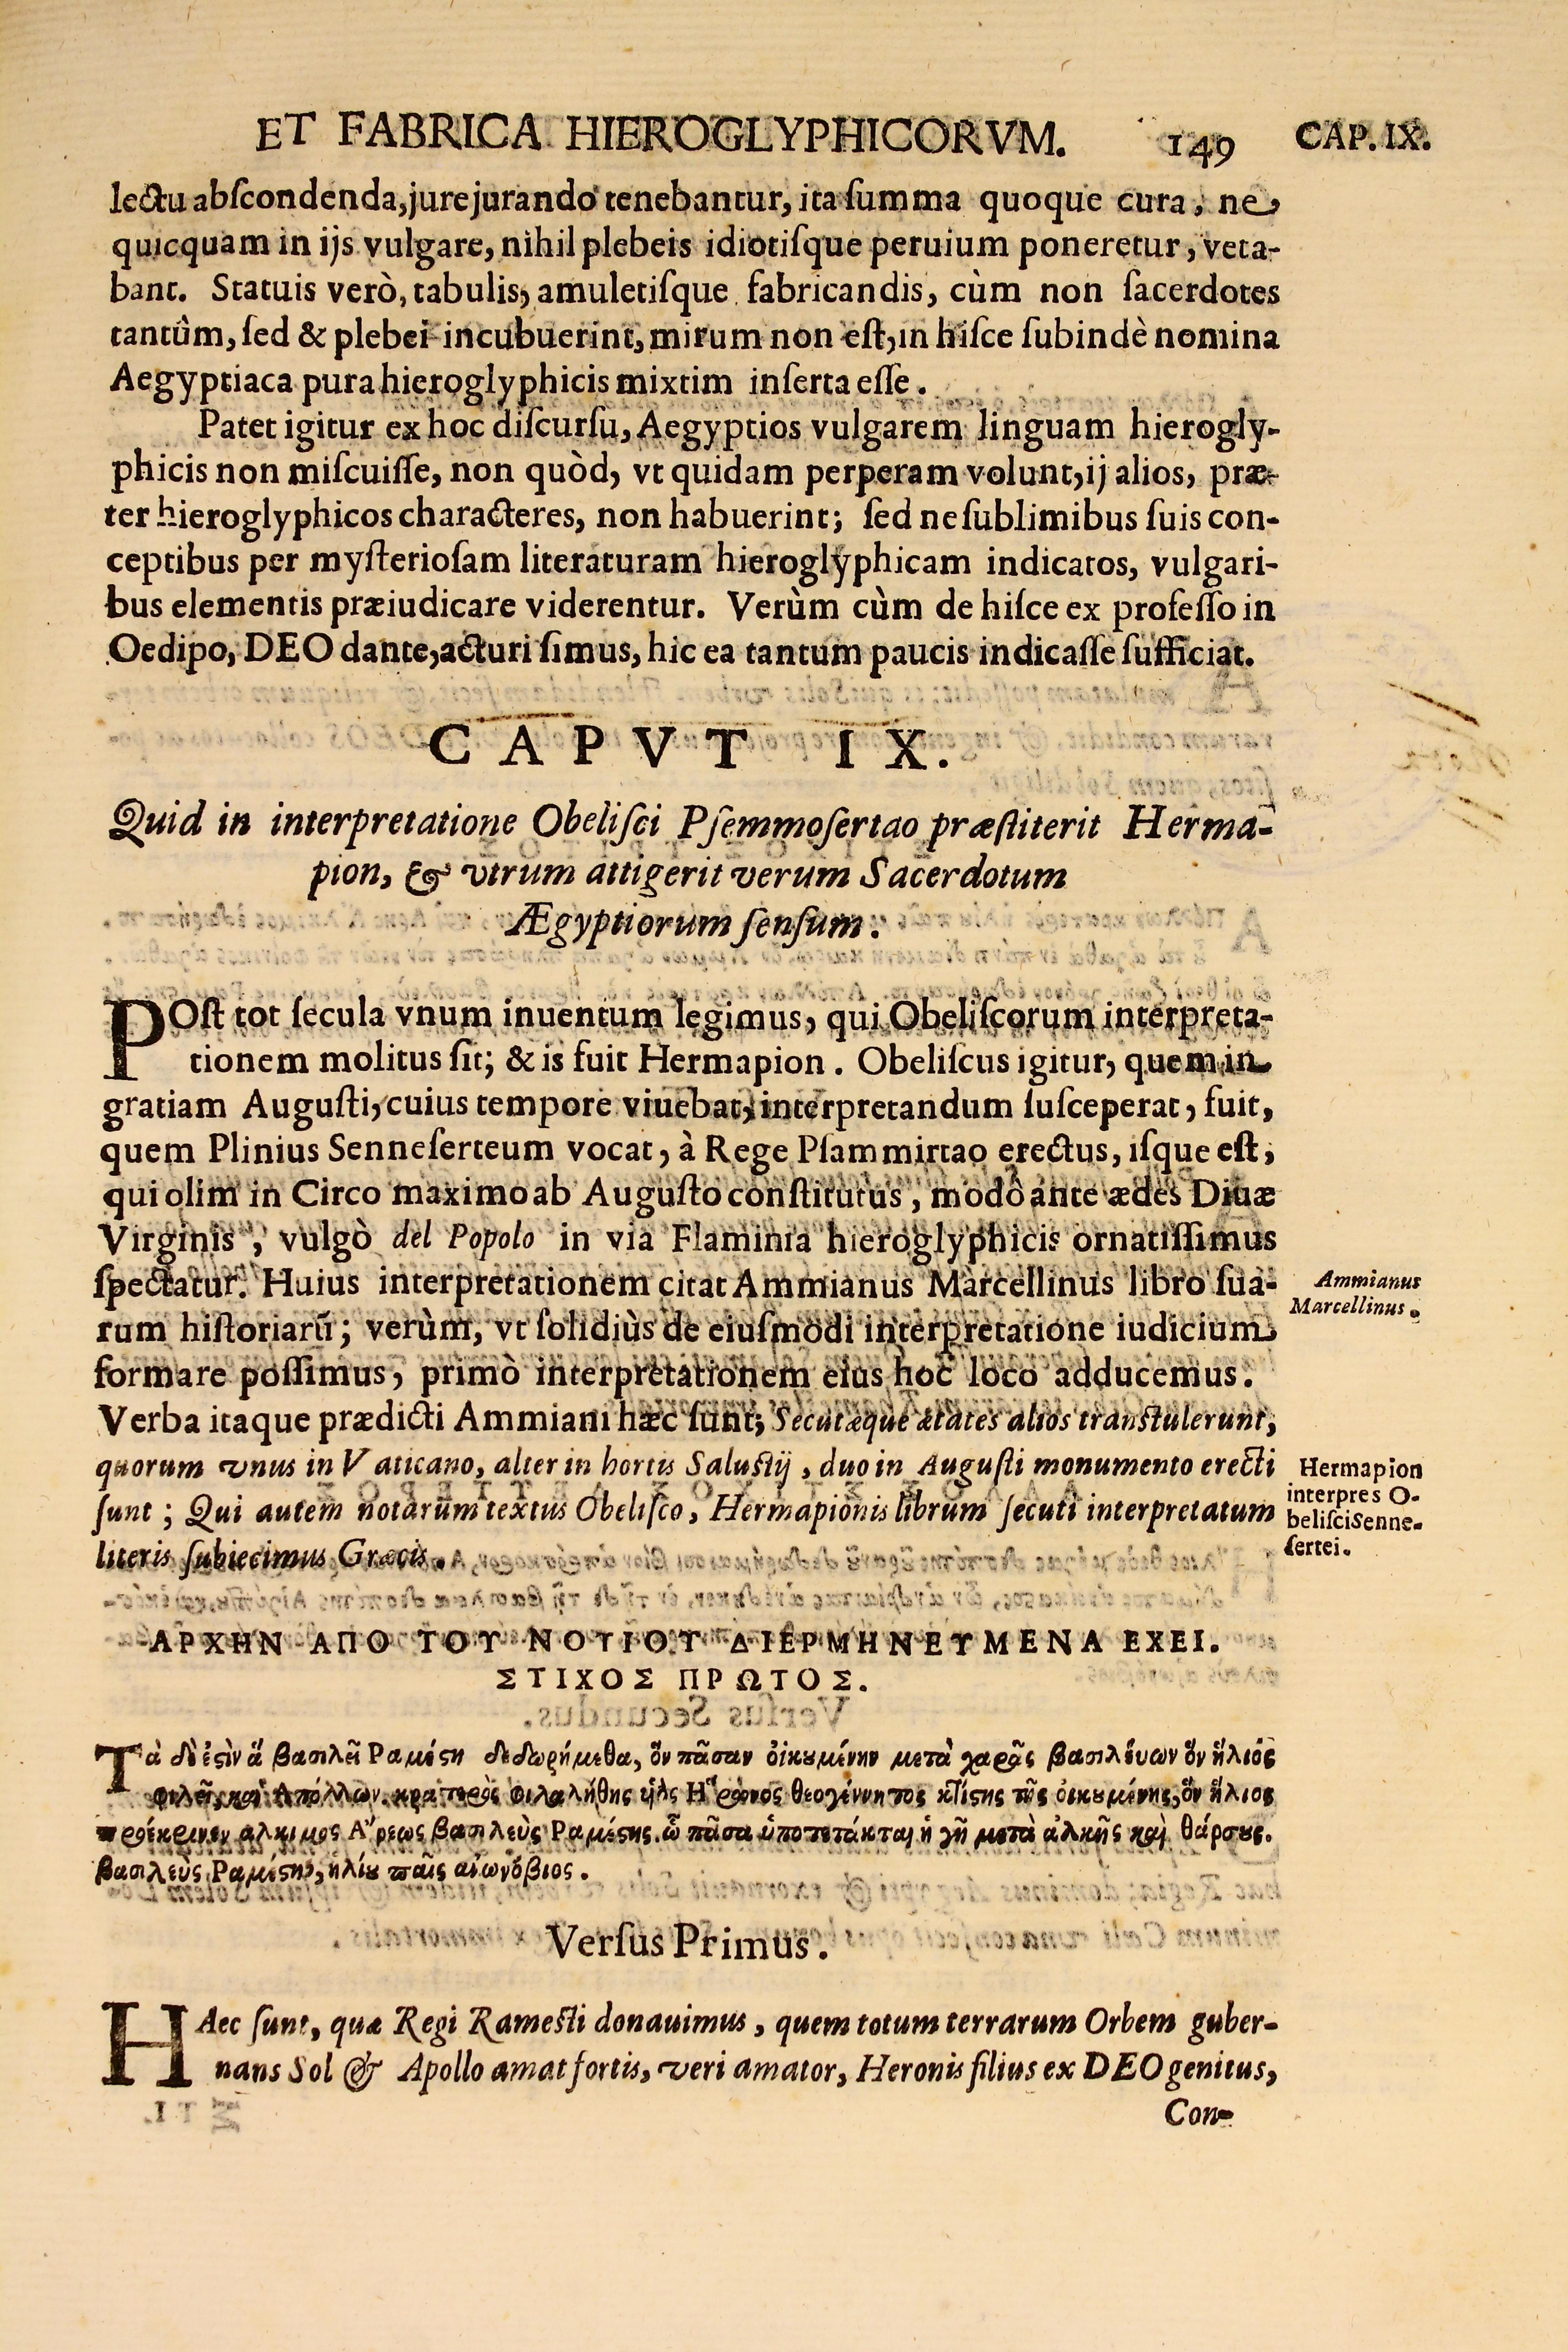 ET FABRICA HIEROGLYPHICORVM. 149 CAP. IX.
lectu abſcondenda, jurejurando tenebantur, ita ſumma quoque cura, ne
quicquam in ijs vulgare, nihil plebeis idiotiſque peruium poneretur, veta-
bant. Statuis verò, tabulis, amuletiſque fabricandis, cùm non ſacerdotes
tantùm, ſed & plebei incubuerint, mirum non eſt, in hiſce ſubindè nomina
Aegyptiaca pura hieroglyphicis mixtim inſerta eſſe.
Patet igitur ex hoc diſcurſu, Aegyptios vulgarem linguam hierogly-
phicis non miſcuiſſe, non quòd, vt quidam perperam volunt, ij alios, præ-
ter hieroglyphicos characteres, non habuerint; ſed ne ſublimibus ſuis con-
ceptibus per myſterioſam literaturam hieroglyphicam indicatos, vulgari-
bus elementis præiudicare viderentur. Verùm cùm de hiſce ex profeſſo in
Oedipo, DEO dante, acturi ſimus, hic ea tantum paucis indicaſſe ſufficiat.
CAPVT IX.
Quid in interpretatione Obeliſci Pſemmoſertao præſtiterit Herma-
pion, & vtrum attigerit verum Sacerdotum
Ægyptiorum ſenſum.
POſt tot ſecula vnum inuentum legimus, qui Obeliſcorum interpreta-
tionem molitus ſit; & is fuit Hermapion. Obeliſcus igitur, quem in
gratiam Auguſti, cuius tempore viuebat, interpretandum ſuſceperat, fuit,
quem Plinius Senneſerteum vocat, à Rege Pſammirtao erectus, iſque eſt,
qui olim in Circo maximo ab Auguſto conſtitutus, modò ante ædes Diuæ
Virginis, vulgò del Popolo in via Flaminia hieroglyphicis ornatiſſimus
ſpectatur. Huius interpretationem citat Ammianus Marcellinus libro ſua-
Ammianus
Marcellinus.
rum hiſtoriarũ; verùm, vt ſolidiùs de eiuſmodi interpretatione iudicium
formare poſſimus, primò interpretationem eius hoc loco adducemus.
Verba itaque prædicti Ammiani hæc ſunt; Secutæque ætates alios tranſtulerunt,
quorum vnus in Vaticano, alter in hortis Saluſtij, duo in Auguſti monumento erecti
ſunt; Qui autem notarum textus Obeliſco, Hermapionis librum ſecuti interpretatum
literis ſubiecimus Græcis.
Hermapion
interpres O-
beliſci Senne-
ſertei.
ΑΡΧΗΝ ΑΠΟ ΤΟΥ ΝΟΤΙΟΥ ΔΙΕΡΜΗΝΕΥΜΕΝΑ ΕΧΕΙ.
ΣΤΙΧΟΣ ΠΡΩΤΟΣ.
Τὰ δὲ ἐςὶν ἃ βασιλεῖ Ραμέςη δεδωρήμεθα, ὃν πᾶσαν οἰκουμένην μετὰ χαρᾶς βασιλεύων ὃν ἥλιος
φιλεῖ, καὶ Απόλλων. κρατερὸς φιλαλήθης υἱὸς Ηʹρωνος θεογέννητος κτίςης τῆς οἰκουμένης, ὃν ἥλιος
προέκρινεν ἄλκιμος Αʹρεως βασιλεὺς Ραμέςης. ᾧ πᾶσα ὑποτέτακται ἡ γῆ μετὰ ἀλκῆς καὶ θάρσους.
βασιλεὺς Ραμέςης, ἡλίου παῖς αἰωνόβιος.
Verſus Primus.
HAec ſunt, quæ Regi Rameſti donauimus, quem totum terrarum Orbem guber-
nans Sol & Apollo amat fortis, veri amator, Heronis filius ex DEO genitus,
Con-